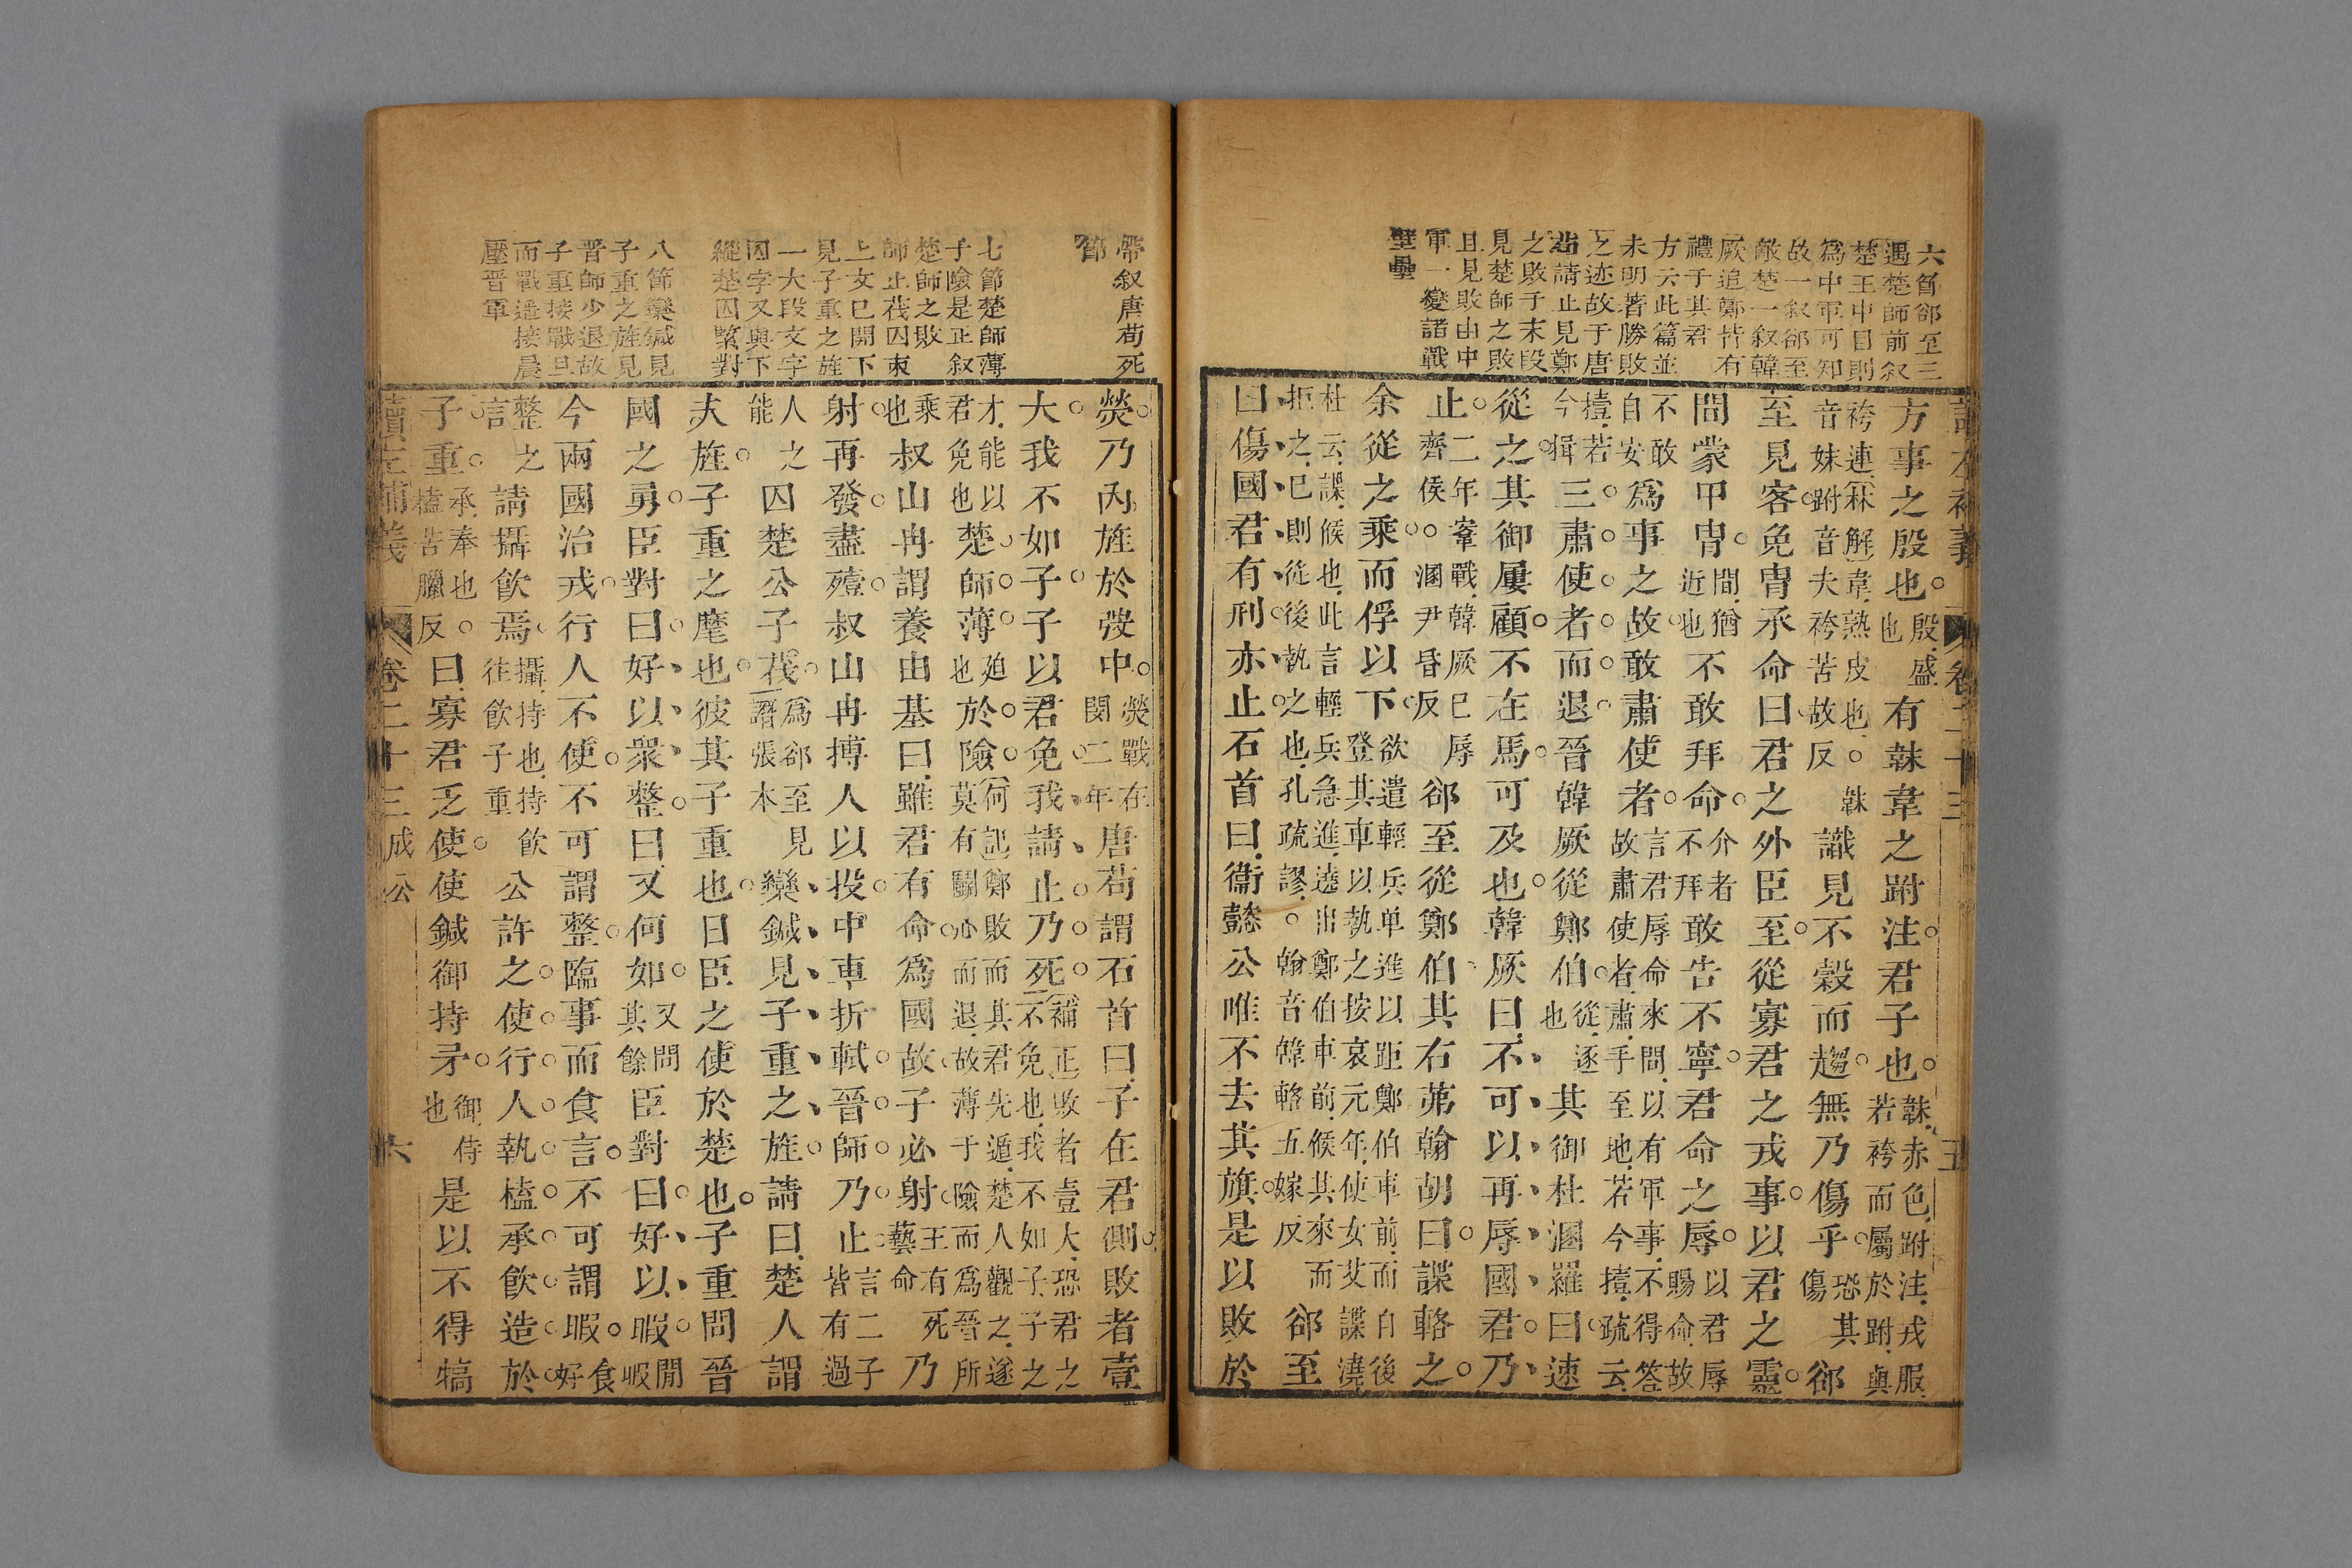 六節郤至三
遇楚師前叙
楚王中目則
為中軍可知
故一叙郤至
敵楚一叙韓
厥追鄭皆有
禮于其君
方云此篇並
未明著勝敗
之迹故于唐
茍請止見鄭
之敗子末段
見楚師之敗
且見敗由中
軍一變諸戰
壁壘
讀左補義 卷二十三 五
方事之殷也殷盛也有韎韋之跗注君子也韎赤色跗注戎服若袴而屬於跗與
袴連韎解韋熟皮也韎音妹跗音夫袴苦故反識見不穀而趨無乃傷乎恐其傷郤
至見客免胄承命曰君之外臣至從寡君之戎事以君之靈
間蒙甲胄間猶近也不敢拜命介者不拜敢告不寧君命之辱以君辱賜命故
不敢自安為事之故敢肅使者言君辱命來問以有軍事不得答故肅使者肅手至地若今撎疏云
撎若今揖三肅使者而退晉韓厥從鄭伯從逐也其御杜溷羅曰速
從之其御屢顧不在馬可及也韓厥曰不可以再辱國君乃
止二年鞌戰韓厥已辱齊侯溷尹昏反郤至從鄭伯其右茀翰胡曰諜輅之
余從之乘而俘以下欲遣輕兵单進以距鄭伯車前而自後登其車以執之按哀元年使女艾諜澆
杜云諜候也此言輕兵急進遶出鄭伯車前候其來而拒之已則從後執之也孔疏謬翰音韓輅五嫁反郤至
曰傷國君有刑亦止石首曰衞懿公唯不去其旗是以敗於
帶叙唐茍死
節
七節楚師薄
于險是正叙
楚師之敗
師止茷囚束
上文已開下
見子重之旌
一大段文字
囚字又與下
縱楚囚緊對
八節欒鍼見
子重之旌見
晋師少退故
子重接戰旦
而戰遥接晨
壓晋軍
熒乃內旌於弢中熒戰在閔二年唐茍謂石首曰子在君側敗者壹
大我不如子子以君免我請止乃死補正敗者壹大恐君之不免也我不如子子之
才能以君免也楚師薄迫也於險何記鄭敗而其君先遁楚人觀之遂莫有鬭心而退故薄于險而為晉所
乘也叔山冉謂養由基曰雖君有命為國故子必射王有命死藝乃
射再發盡殪叔山冉搏人以投中車折軾晉師乃止言二子皆有過
人之能囚楚公子茷為郤至見譖張本欒鍼見子重之旌請曰楚人謂
夫旌子重之麾也彼其子重也日臣之使於楚也子重問晉
國之勇臣對曰好以衆整曰又何如又問其餘臣對曰好以暇閒暇
今兩國治戎行人不使不可謂整臨事而食言不可謂暇食好
整之言請攝飲焉攝持也持飲往飲子重公許之使行人執榼承飲造於
子重承奉也榼苦臘反曰寡君乏使使鍼御持矛御侍也是以不得犒
讀左補義 卷二十三 成公 六